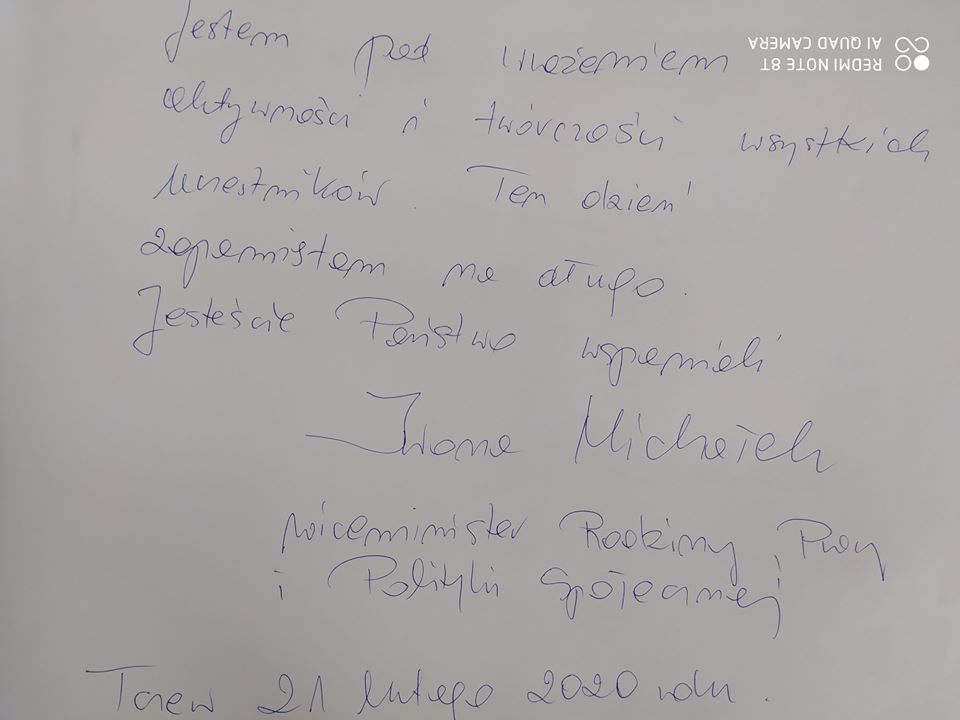 Jestem pod wrażeniem
aktywności i twórczości wszystkich
uczestników. Ten dzień
zapamiętam na długo.
Jesteście Państwo wspaniali
Iwona Michałek
wiceminister Rodziny, Pracy
i Polityki Społecznej
Tczew 21 lutego 2020 roku.
REDMI NOTE 8T
AI QUAD CAMERA